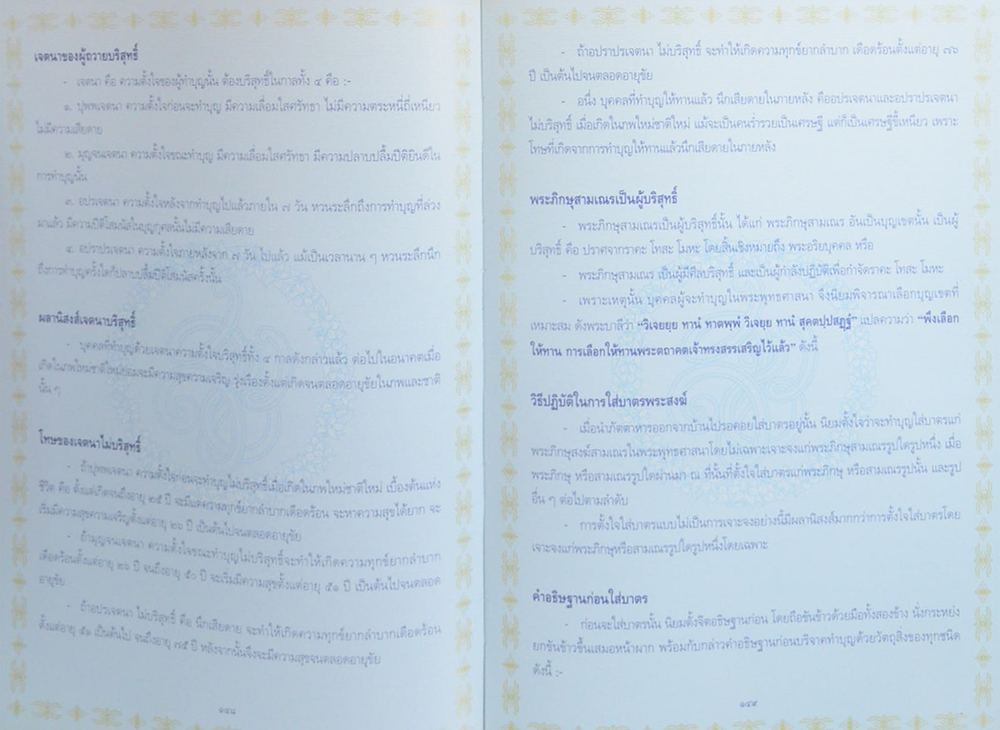 เจตนาของผู้ถวายบริสุทธิ์
- เจตนา คือ ความตั้งใจของผู้ทำบุญนั้น ต้องบริสุทธิ์ในกาลทั้ง ๔ คือ :-
๑. ปุพพเจตนา ความตั้งใจก่อนจะทำบุญ มีความเลื่อมใสศรัทธา ไม่มีความตระหนี่ถี่เหนียว
ไม่มีความเสียดาย
๒. มุญจนเจตนา ความตั้งใจขณะทำบุญ มีความเลื่อมใสศรัทธา มีความปลาบปลื้มปีติยินดีใน
การทำบุญนั้น
๓. อปรเจตนา ความตั้งใจหลังจากทำบุญไปแล้วภายใน ๗ วัน หวนระลึกถึงการทำบุญที่ล่วง
มาแล้ว มีความปีติโสมนัสในบุญกุศลนั้นไม่มีความเสียดาย
๔. อปราปรเจตนา ความตั้งใจภายหลังจาก ๗ วัน ไปแล้ว แม้เป็นเวลานาน ๆ หวนระลึกนึก
ถึงการทำบุญครั้งใดก็ปลาบปลื้มปีติโสมนัสครั้งนั้น
ผลานิสงส์เจตนาบริสุทธิ์
- บุคคลที่ทำบุญด้วยเจตนาความตั้งใจบริสุทธิ์ทั้ง ๔ กาลดังกล่าวแล้ว ต่อไปในอนาคตเมื่อ
เกิดในภพใหม่ชาติใหม่ย่อมจะมีความสุขความเจริญ รุ่งเรืองตั้งแต่เกิดจนตลอดอายุขัยในภพและชาติ
นั้น ๆ
โทษของเจตนาไม่บริสุทธิ์
- ถ้าปุพพเจตนา ความตั้งใจก่อนจะทำบุญไม่บริสุทธิ์เมื่อเกิดในภพใหม่ชาติใหม่ เบื้องต้นแห่ง
ชีวิต คือ ตั้งแต่เกิดจนถึงอายุ ๒๕ ปี จะมีแต่ความทุกข์ยากลำบากเดือดร้อน จะหาความสุขได้ยาก จะ
เริ่มมีความสุขความเจริญตั้งแต่อายุ ๒๖ ปี เป็นต้นไปจนตลอดอายุขัย
- ถ้ามุญจนเจตนา ความตั้งใจขณะทำบุญไม่บริสุทธิ์จะทำให้เกิดความทุกข์ยากลำบาก
เดือดร้อนตั้งแต่อายุ ๒๖ ปี จนถึงอายุ ๕๐ ปี จะเริ่มมีความสุขตั้งแต่อายุ ๕๑ ปี เป็นต้นไปจนตลอด
อายุขัย
- ถ้าอปรเจตนา ไม่บริสุทธิ์ คือ นึกเสียดาย จะทำให้เกิดความทุกข์ยากลำบากเดือดร้อน
ตั้งแต่อายุ ๕๑ เป็นต้นไป จนถึงอายุ ๗๕ ปี หลังจากนั้นจึงจะมีความสุขจนตลอดอายุขัย
๑๔๘
- ถ้าอปราปรเจตนา ไม่บริสุทธิ์ จะทำให้เกิดความทุกข์ยากลำบาก เดือดร้อนตั้งแต่อายุ ๗๖
ปี เป็นต้นไปจนตลอดอายุขัย
- อนึ่ง บุคคลที่ทำบุญให้ทานแล้ว นึกเสียดายในภายหลัง คืออปรเจตนาและอปราปรเจตนา
ไม่บริสุทธิ์ เมื่อเกิดในภพใหม่ชาติใหม่ แม้จะเป็นคนร่ำรวยเป็นเศรษฐี แต่ก็เป็นเศรษฐีขี้เหนียว เพราะ
โทษที่เกิดจากการทำบุญให้ทานแล้วนึกเสียดายในภายหลัง
พระภิกษุสามเณรเป็นผู้บริสุทธิ์
- พระภิกษุสามเณรเป็นผู้บริสุทธิ์นั้น ได้แก่ พระภิกษุสามเณร อันเป็นบุญเขตนั้น เป็นผู้
บริสุทธิ์ คือ ปราศจากราคะ โทสะ โมหะ โดยสิ้นเชิงหมายถึง พระอริยบุคคล หรือ
- พระภิกษุสามเณร เป็นผู้มีศีลบริสุทธิ์ และเป็นผู้กำลังปฏิบัติเพื่อกำจัดราคะ โทสะ โมหะ
- เพราะเหตุนั้น บุคคลผู้จะทำบุญในพระพุทธศาสนา จึงนิยมพิจารณาเลือกบุญเขตที่
เหมาะสม ดังพระบาลีว่า “วิเจยยุย ทานํ ทาตพฺพํ วิเจยฺย ทานํ สุคตปฺปสฏฺฐํ” แปลความว่า “พึงเลือก
ให้ทาน การเลือกให้ทานพระตถาคตเจ้าทรงสรรเสริญไว้แล้ว” ดังนี้
วิธีปฏิบัติในการใส่บาตรพระสงฆ์
- เมื่อนำภัตตาหารออกจากบ้านไปรอคอยใส่บาตรอยู่นั้น นิยมตั้งใจว่าจะทำบุญใส่บาตรแก่
พระภิกษุสงฆ์สามเณรในพระพุทธศาสนาโดยไม่เฉพาะเจาะจงแก่พระภิกษุสามเณรรูปใดรูปหนึ่ง เมื่อ
พระภิกษุ หรือสามเณรรูปใดผ่านมา ณ ที่นั้นที่ตั้งใจใส่บาตรแก่พระภิกษุ หรือสามเณรรูปนั้น และรูป
อื่น ๆ ต่อไปตามลำดับ
- การตั้งใจใส่บาตรแบบไม่เป็นการเจาะจงอย่างนี้มีผลานิสงส์มากกว่าการตั้งใจใส่บาตรโดย
เจาะจงแก่พระภิกษุหรือสามเณรรูปใดรูปหนึ่งโดยเฉพาะ
คำอธิษฐานก่อนใส่บาตร
- ก่อนจะใส่บาตรนั้น นิยมตั้งจิตอธิษฐานก่อน โดยถือขันข้าวด้วยมือทั้งสองข้าง นั่งกระหย่ง
ยกขันข้าวขึ้นเสมอหน้าผาก พร้อมกับกล่าวคำอธิษฐานก่อนบริจาคทำบุญด้วยวัตถุสิ่งของทุกชนิด
ดังนี้ :-
๑๔๙